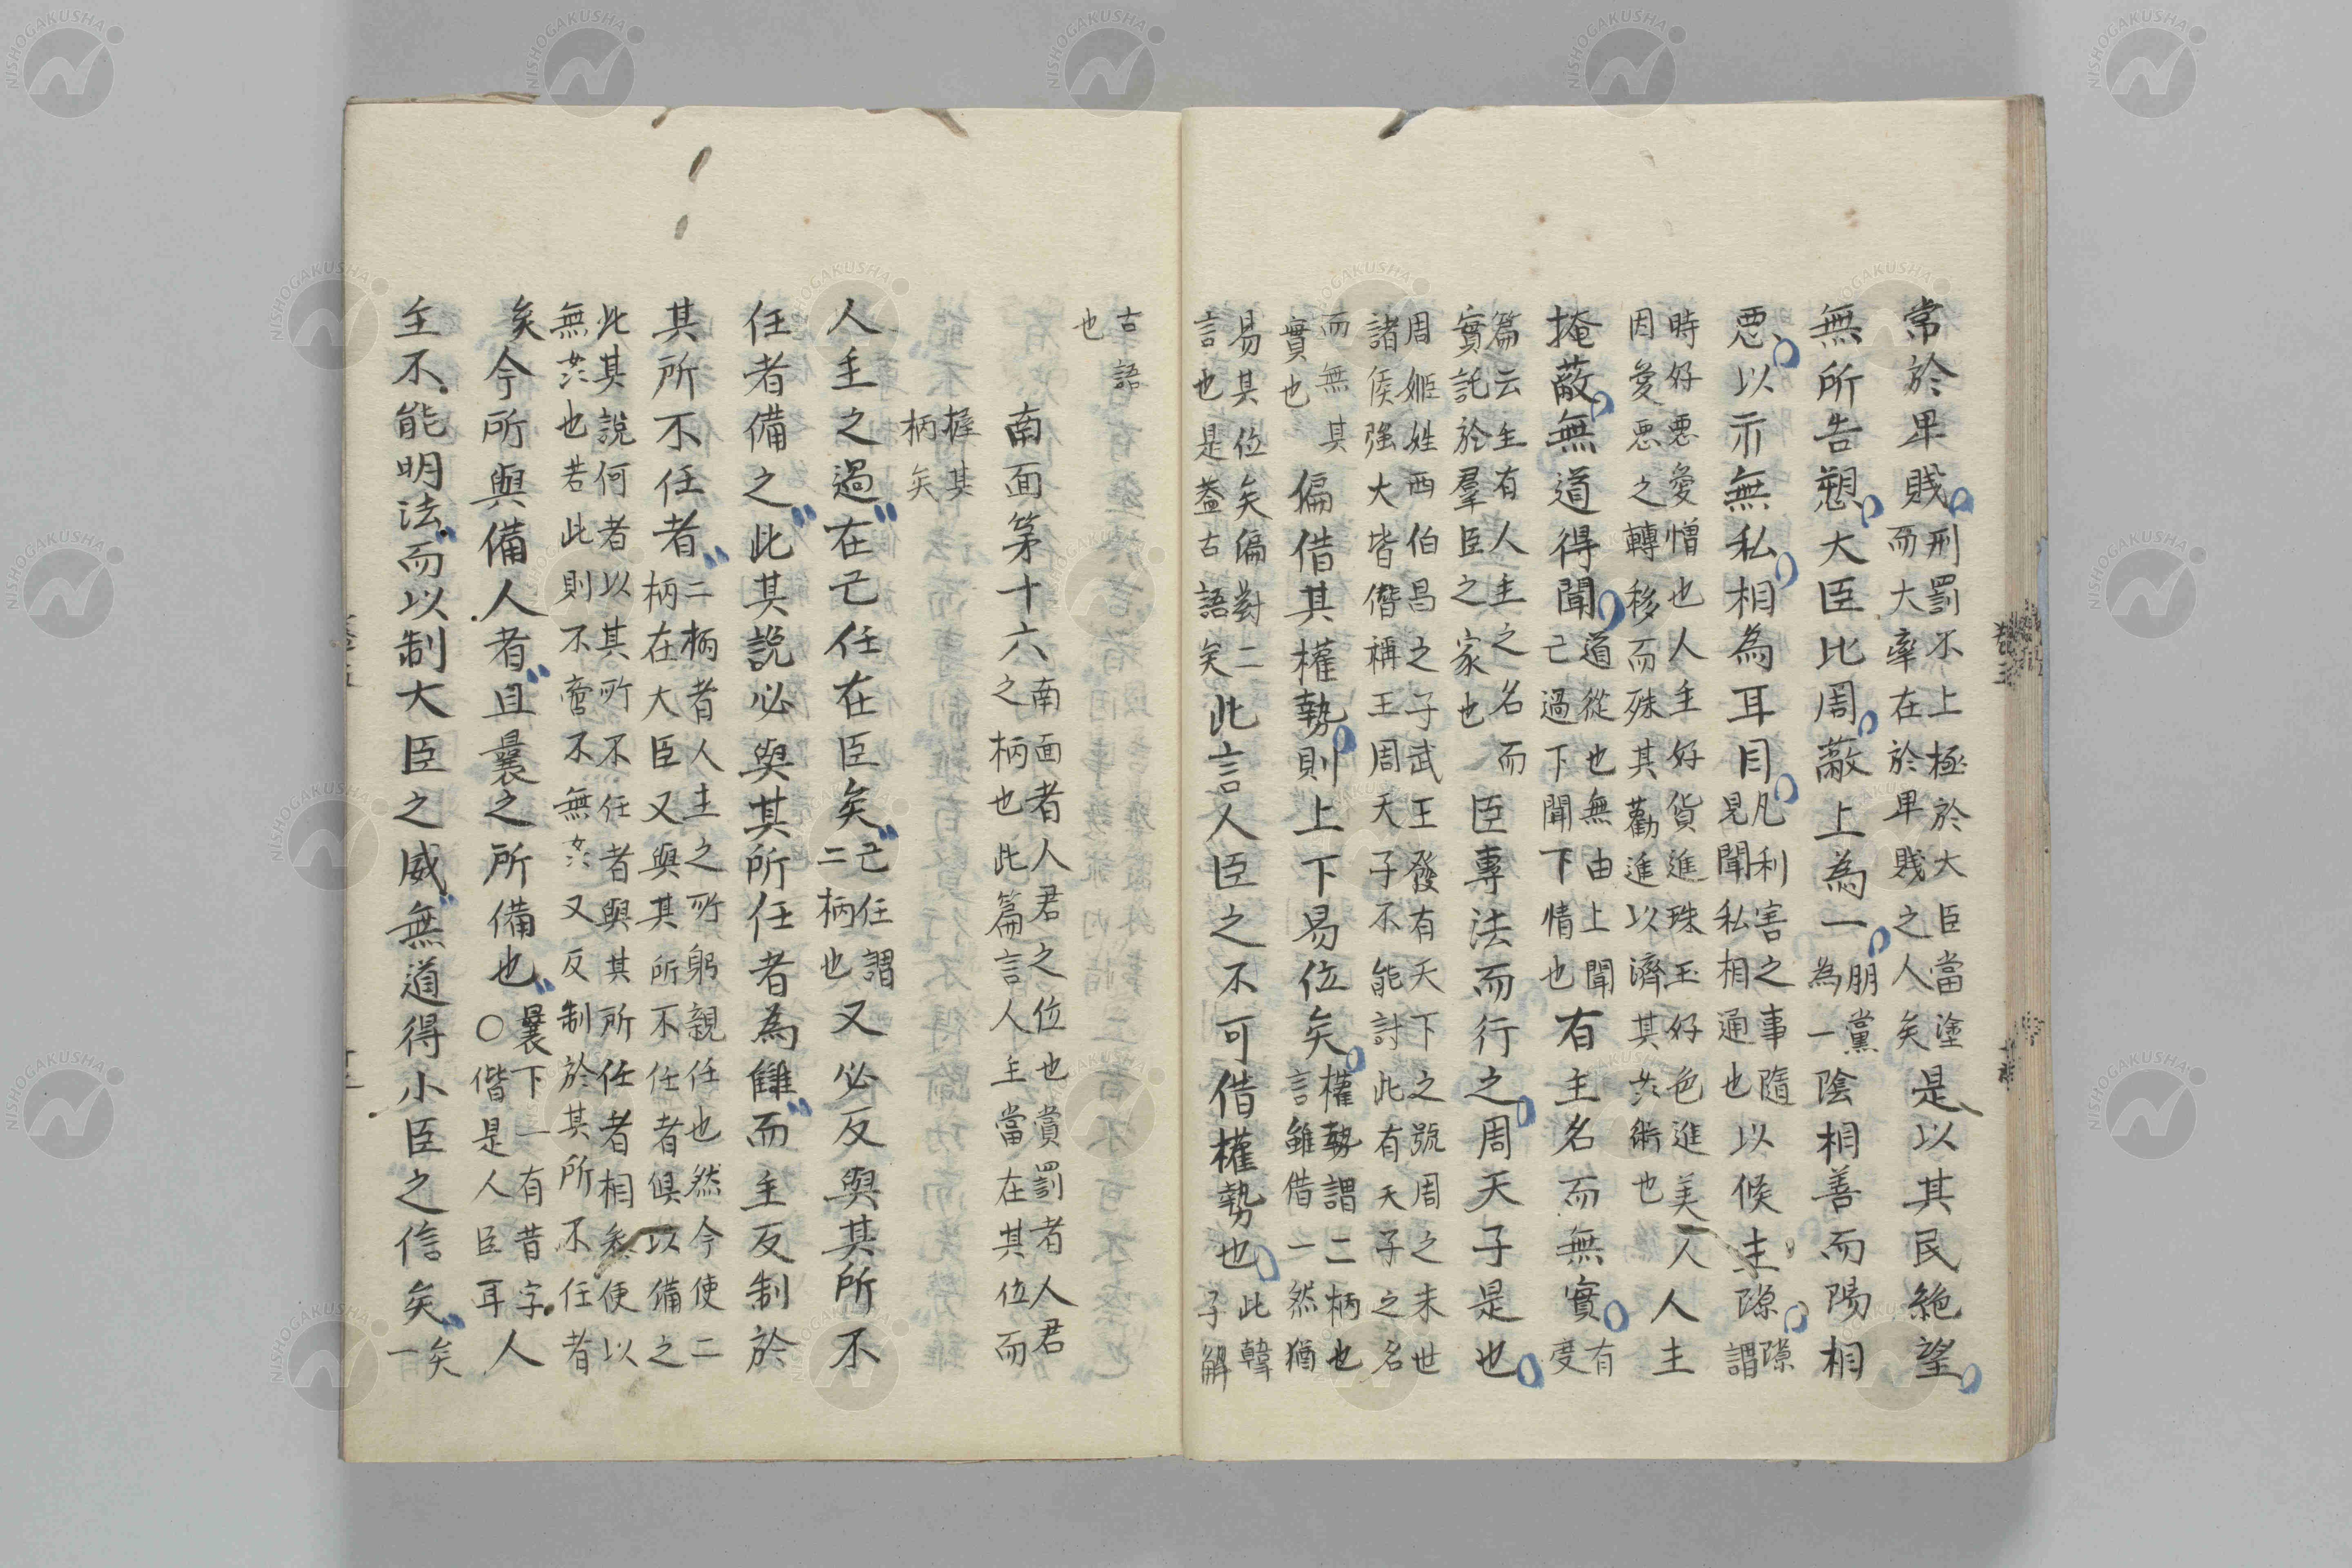 常於卑賤刑罰不上極於大臣當塗而大率在於卑賤之人矣是以其民絶望
無所告愬大臣比周蔽上為一朋黨為一陰相善而陽相
惡以示無私相為耳目凡利害之事隨見聞私相通也以候主隙隙謂
時好悪愛憎也人主好貨進珠玉好色進美人因愛悪之轉移而殊其勸進以濟其姦術也人主
掩蔽無道得聞道從也無由上聞己過下聞下情也有主名而無實有度
篇云主有人主之名而實託於羣臣之家也臣專法而行之周天子是也
周姬姓西伯昌之子武王發有天下之號周之末世諸侯強大皆僭稱王周天子不能討此有天子之名
而無其實也偏借其權勢則上下易位矣權勢謂二柄也言雖借一然猶
易其位矣偏對二言也是蓋古語矣此言人臣之不可借權勢也此韓子解
古語也
南面第十六南面者人君之位也賞罰者人君之柄也此篇言人主當在其位而
握其柄矣
人主之過在己任在臣矣己任謂二柄也又必反與其所不
任者備之此其説必與其所任者為讎而主反制於
其所不任者二柄者人主之所躬親任也然今使二柄在大臣又與其所不任者俱以備之
此其說何者以其所不任者與其所任者相參使以無姦也若此則不啻不無姦又反制於其所不任者
矣今所與備人者且曩之所備也曩下一有昔字○偕是人臣耳人
主不能明法而以制大臣之威無道得小臣之信矣矣一
NISHOGAKUSHA